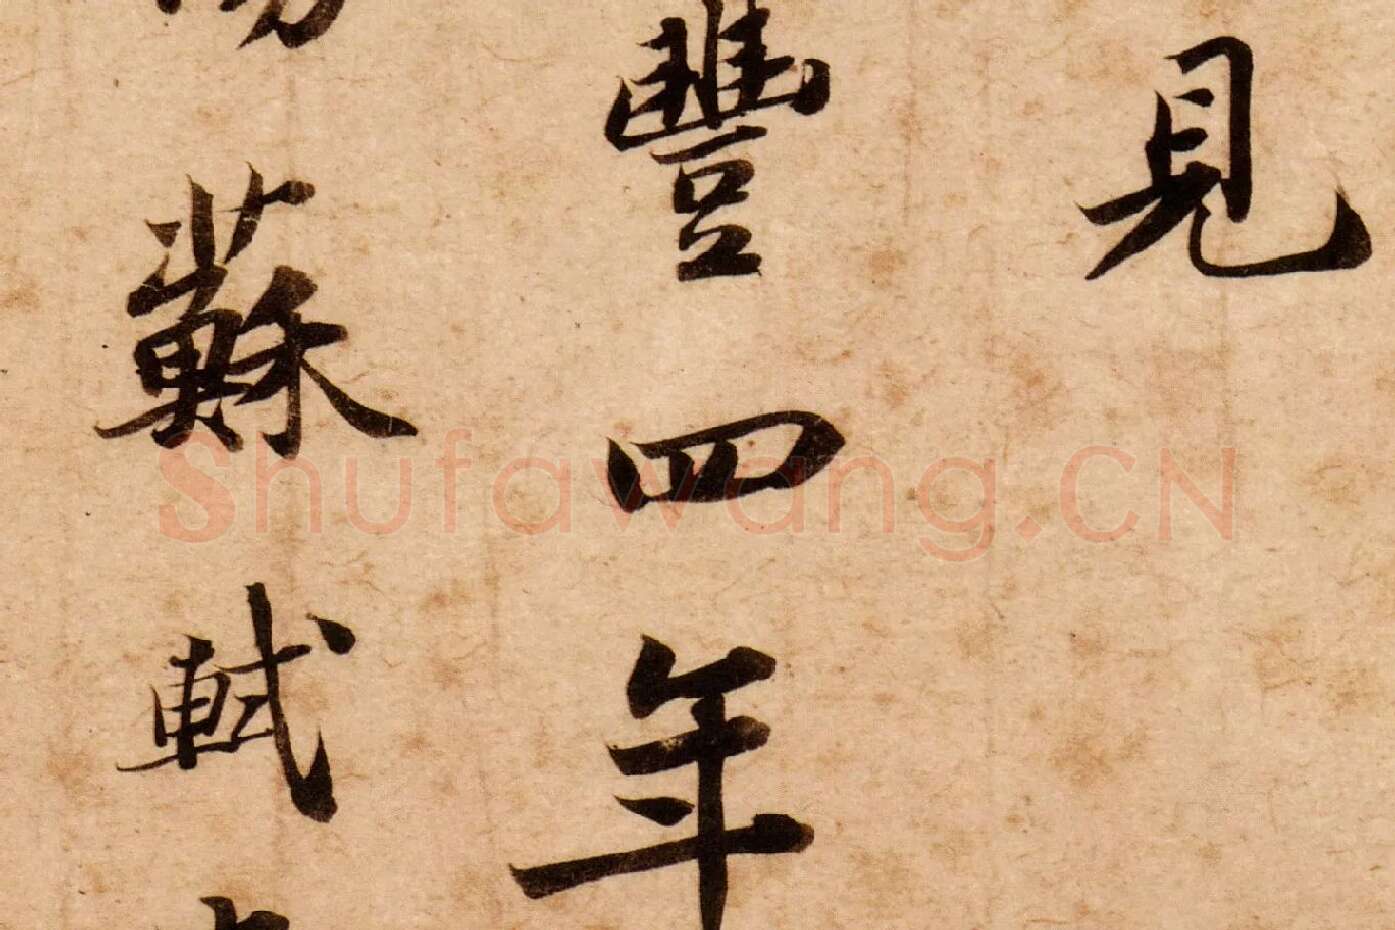 見
豐四年
蘇軾
Shufawang.CN